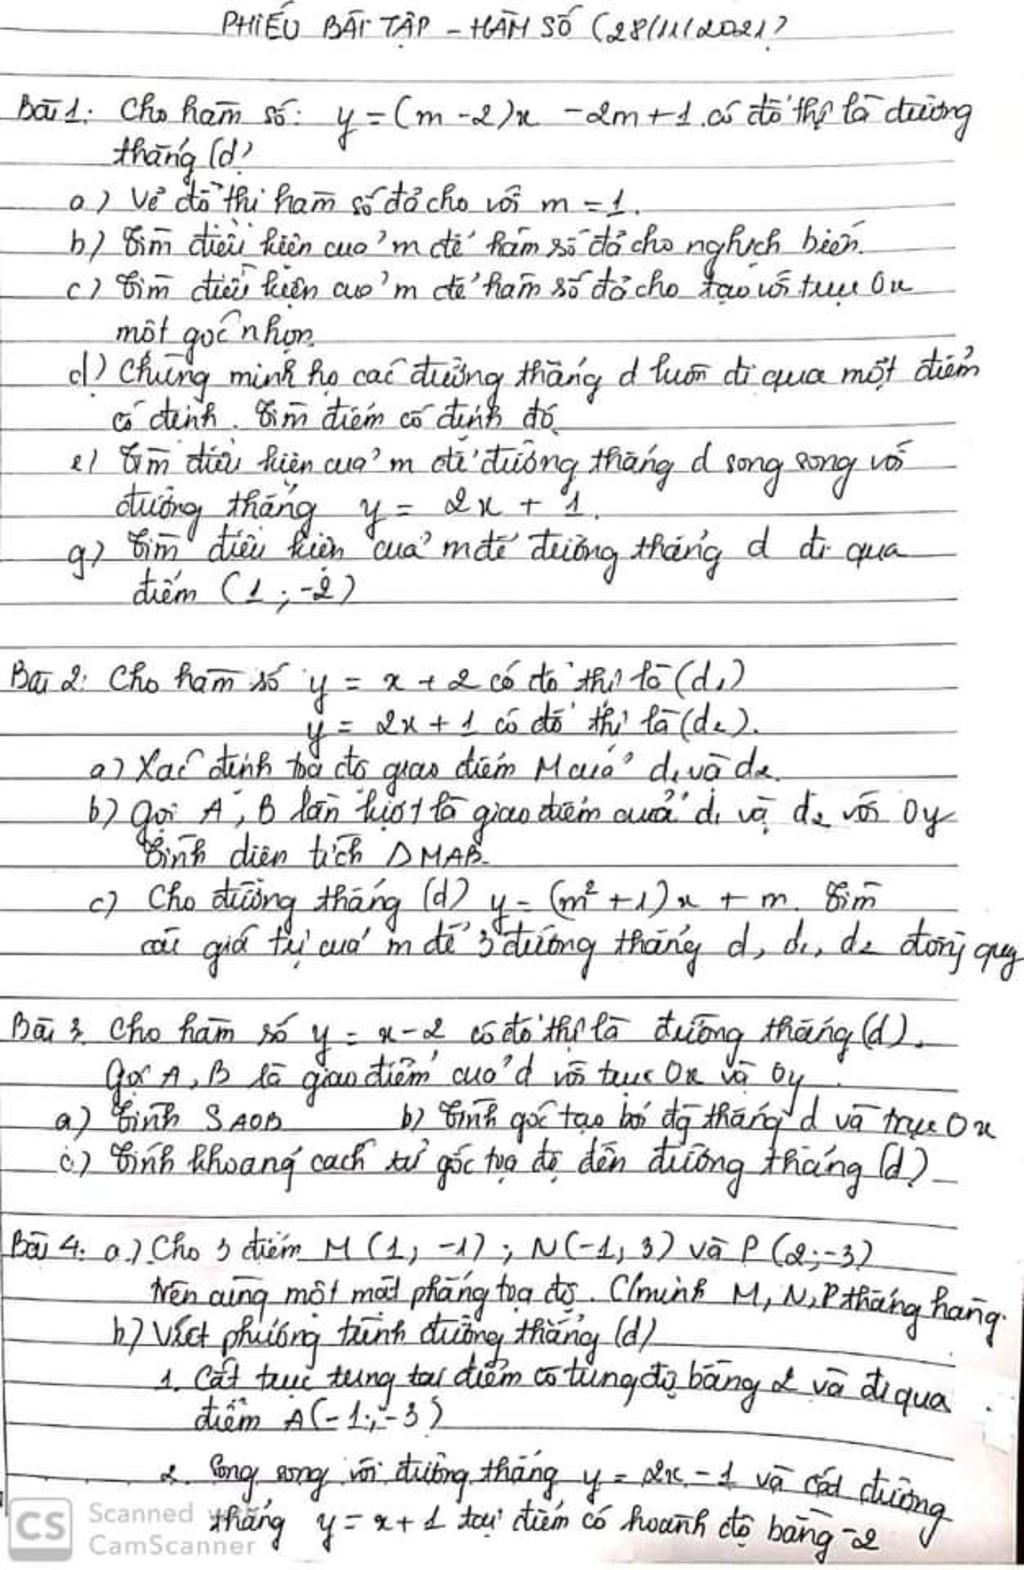 PHIẾU BÀI TẬP - HÀM SỐ (28/11/2021)
Bài 1: Cho hàm số: y = (m - 2)x - 2m + 1 có đồ thị là đường
thẳng (d)
a) Vẽ đồ thị hàm số đã cho với m = 1.
b) Tìm điều kiện của m để hàm số đã cho nghịch biến.
c) Tìm điều kiện của m để hàm số đã cho tạo với trục Ox
một góc nhọn.
d) Chứng minh họ các đường thẳng d luôn đi qua một điểm
cố định. Tìm điểm cố định đó
e) Tìm điều kiện của m để đường thẳng d song song với
đường thẳng y = 2x + 1.
g) Tìm điều kiện của m để đường thẳng d đi qua
điểm (1; -2)
Bài 2: Cho hàm số y = x + 2 có đồ thị là (d₁)
y = 2x + 1 có đồ thị là (d₂).
a) Xác định toạ độ giao điểm M của d₁ và d₂.
b) Gọi A, B lần lượt là giao điểm của d₁ và d₂ với Oy
Tính diện tích ΔMAB.
c) Cho đường thẳng (d) y = (m² + 1)x + m. Tìm
các giá trị của m để 3 đường thẳng d, d₁, d₂ đồng quy
Bài 3. Cho hàm số y = x - 2 có đồ thị là đường thẳng (d).
Gọi A, B là giao điểm của d với trục Ox và Oy.
a) Tính S AOB b) Tính góc tạo bởi đg thẳng d và trục Ox
c) Tính khoảng cách từ gốc toạ độ đến đường thẳng (d)
Bài 4: a.) Cho 3 điểm M (1; -1); N(-1; 3) và P (2; -3)
trên cùng một mặt phẳng toạ độ. C/minh M, N, P thẳng hàng.
b) Viết phương trình đường thẳng (d)
1. Cắt trục tung tại điểm có tung độ bằng 2 và đi qua
điểm A(-1; -3)
2. Song song với đường thẳng y = 2x - 1 và cắt đường
thẳng y = x + 1 tại điểm có hoành độ bằng -2
CS Scanned
CamScanner